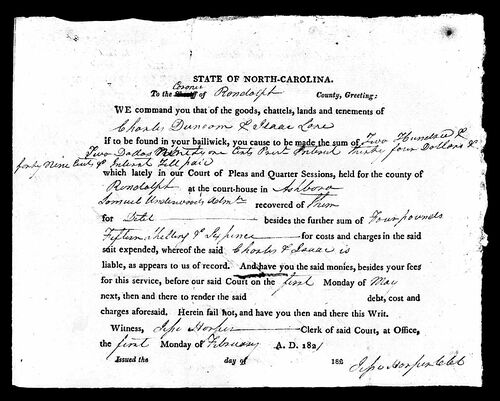 STATE OF NORTH-CAROLINA.
Coroner
To the Sheriff of Rondolph County, Greeting:
WE command you that of the goods, chattels, lands and tenements of
Charles Duncom & Isaac Lane
If to be found in your bailiwick, you cause to be made the sum of Two Hundred &
Two Dollars Ninety one Cents Prin Intrest Thirty four Dollars &
forty Nine Cents & Intrest till paid
which lately in our Court of Pleas and Quarter Sessions, held for the county of
Rondolph at the court-house in Ashboro
Samuel Underwoods Admr recovered of them
for Debt besides the further sum of Four pounds
Fifteen Shillings & Sixpence for costs and charges in the said
suit expended, whereof the said Charles & Isaac is
liable, as appears to us of record. And have you the said monies, besides your fees
for this service, before our said Court on the first Monday of May
next, then and there to render the said debt, cost and
charges aforesaid. Herein fail not, and have you then and there this Writ.
Witness, Jesse Harper Clerk of said Court, at Office,
the first Monday of February A. D. 1821
Issued the day of 182 Jesse Harper Clk